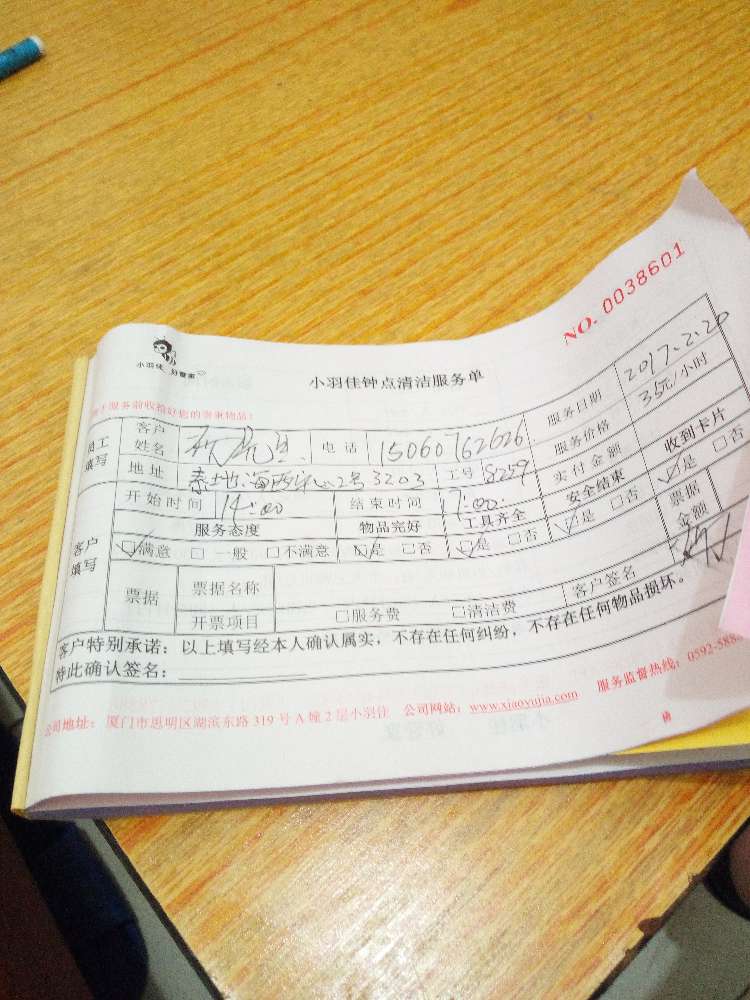 NO. 0038601
小羽佳 好管家
小羽佳钟点清洁服务单
服务前收拾好您的贵重物品!
员工填写 客户姓名 电话 15060762626 服务日期 2017.2.20
地址 泰地海西中心2号3203 工号 8259 服务价格 35元/小时
客户填写 开始时间 14:00 结束时间 17:00 实付金额 收到卡片
服务态度 物品完好 工具齐全 安全结束 ☑是 □否
☑满意 □ 一般 □不满意 ☑是 □否 ☑是 □否 ☑是 □否 票据金额
票据 票据名称 客户签名
开票项目 □服务费 □清洁费
客户特别承诺:以上填写经本人确认属实,不存在任何纠纷,不存在任何物品损坏。
特此确认签名:
公司地址:厦门市思明区湖滨东路 319 号 A 幢 2 层小羽佳 公司网站:www.xiaoyujia.com 服务监督热线:0592-588